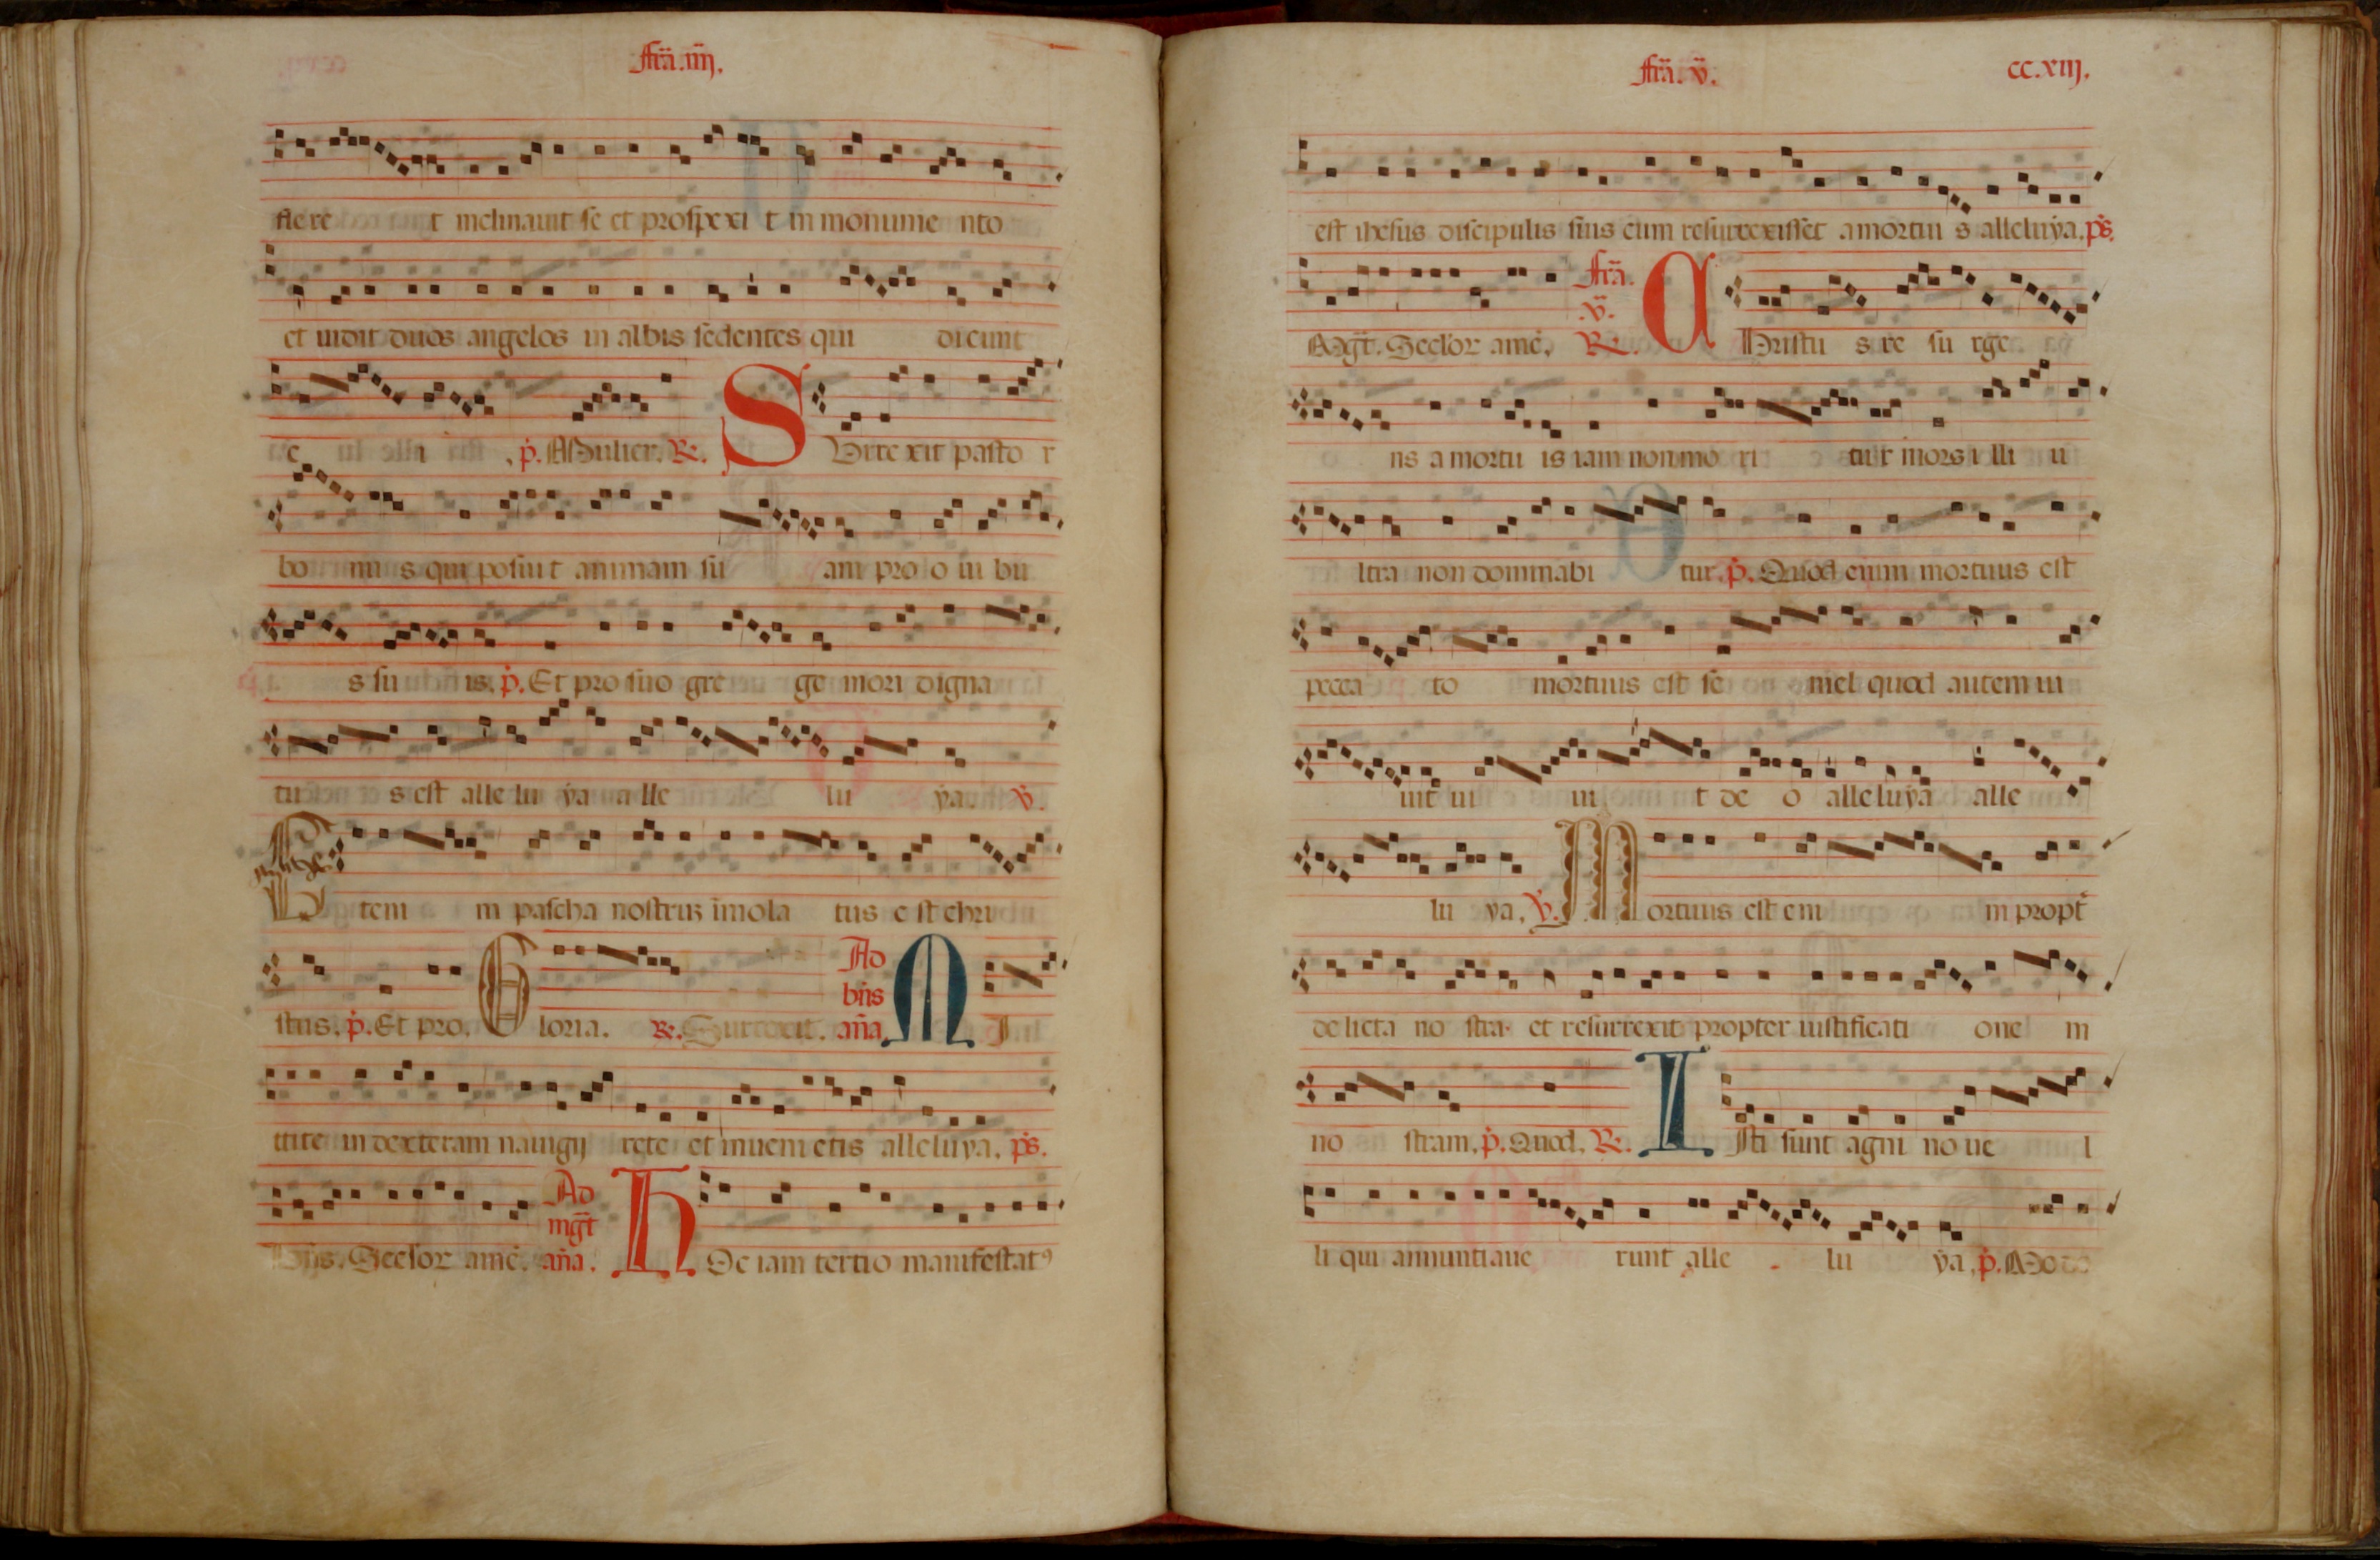 ffrã.iiij.
flere t inclinauit se et prospexi t in monume nto
et uidit duos angelos in albis sedentes qui dicunt
e i , p̃. Mulier. R. S Urre xit pasto r
bo nu s qui posiu t animam su am pro o ui bu
s su is. p̃. Et pro suo gre ge mori digna
tu s est alle lu ya a lle lu ya. v̄.
E tem m pascha nostrum īmola tus e st chri
stus. p̃. Et pro. G loria. R. Surrexit. Ad bn̄s an̄a. M I
ttite in dexteram nauigij rete et inuenietis alleluya. ps̄.
Bn̄s. Seclor amē. Ad mgt̄ an̄a. H Oc iam tertio manifestat⁹
ffrã. v̄. cc.xiij.
est ihesus discipulis suis cum resurrexisset a mortui s alleluya. ps̄.
Mgt̄. Seclor amē. ffrã. v̄. R. C Hristu s re su rge
ns a mortu is iam non mo ri tu r mors i lli u
ltra non dominabi tur. p̃. Quod enim mortuus est
pecca to mortuus est se mel quod autem ui
uit ui ui t de o alleluya alle
lu ya, v̄. M ortuus est eni m propt̄
delicta no stra et resurrexit propter iustificati one m
no stram. p̃. Quod. R. I Sti sunt agni no ue l
li qui annuntiaue runt alle lu ya, p̃. Modo